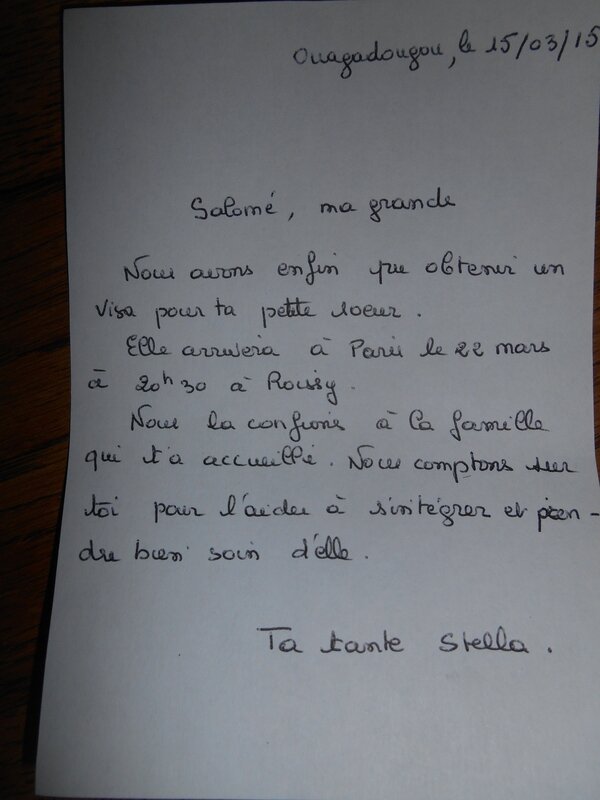 Ouagadougou, le 15/03/15
Salomé, ma grande
Nous avons enfin pu obtenir un
visa pour ta petite soeur.
Elle arrivera à Paris le 22 mars
à 20h30 à Roissy.
Nous la confions à la famille
qui t'a accueillie. Nous comptons sur
toi pour l'aider à s'intégrer et pren-
dre bien soin d'elle.
Ta tante Stella.